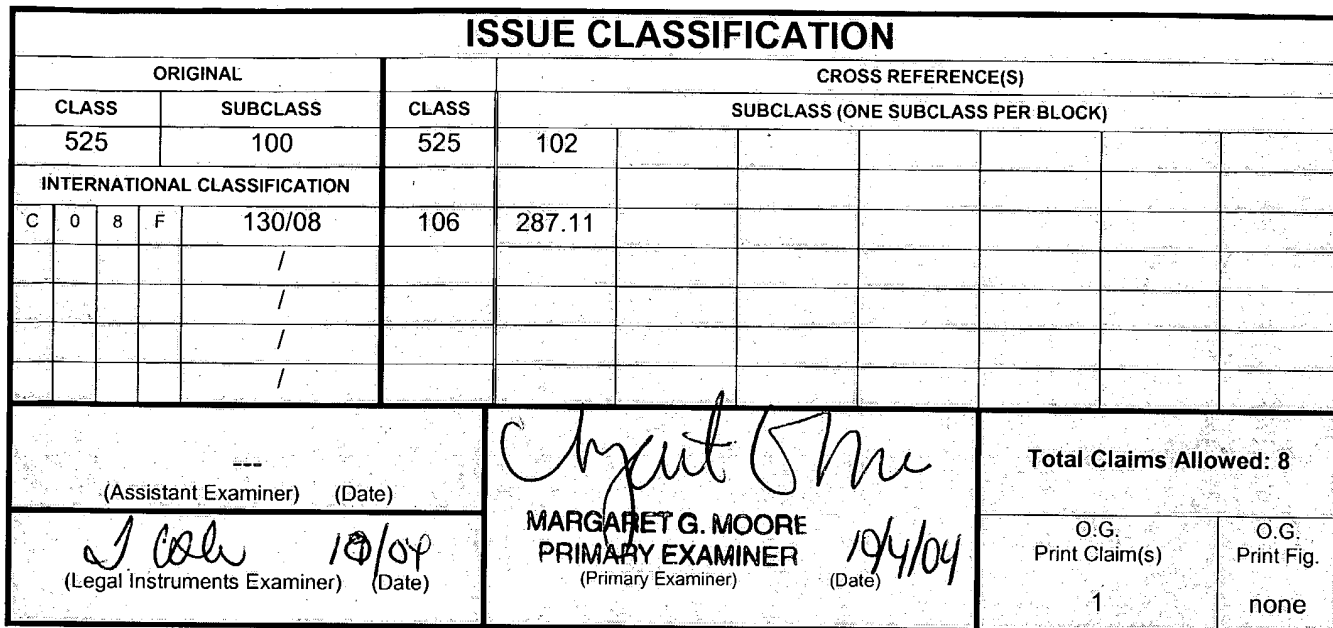 ISSUE CLASSIFICATION
ORIGINAL CROSS REFERENCE(S)
CLASS SUBCLASS CLASS SUBCLASS (ONE SUBCLASS PER BLOCK)
525 100 525 102
INTERNATIONAL CLASSIFICATION
C 0 8 F 130/08 106 287.11
/
/
/
/
---
(Assistant Examiner) (Date)
(Legal Instruments Examiner) (Date)
MARGARET G. MOORE
PRIMARY EXAMINER 10/4/04
(Primary Examiner) (Date)
Total Claims Allowed: 8
O.G. Print Claim(s)
1
O.G. Print Fig.
none